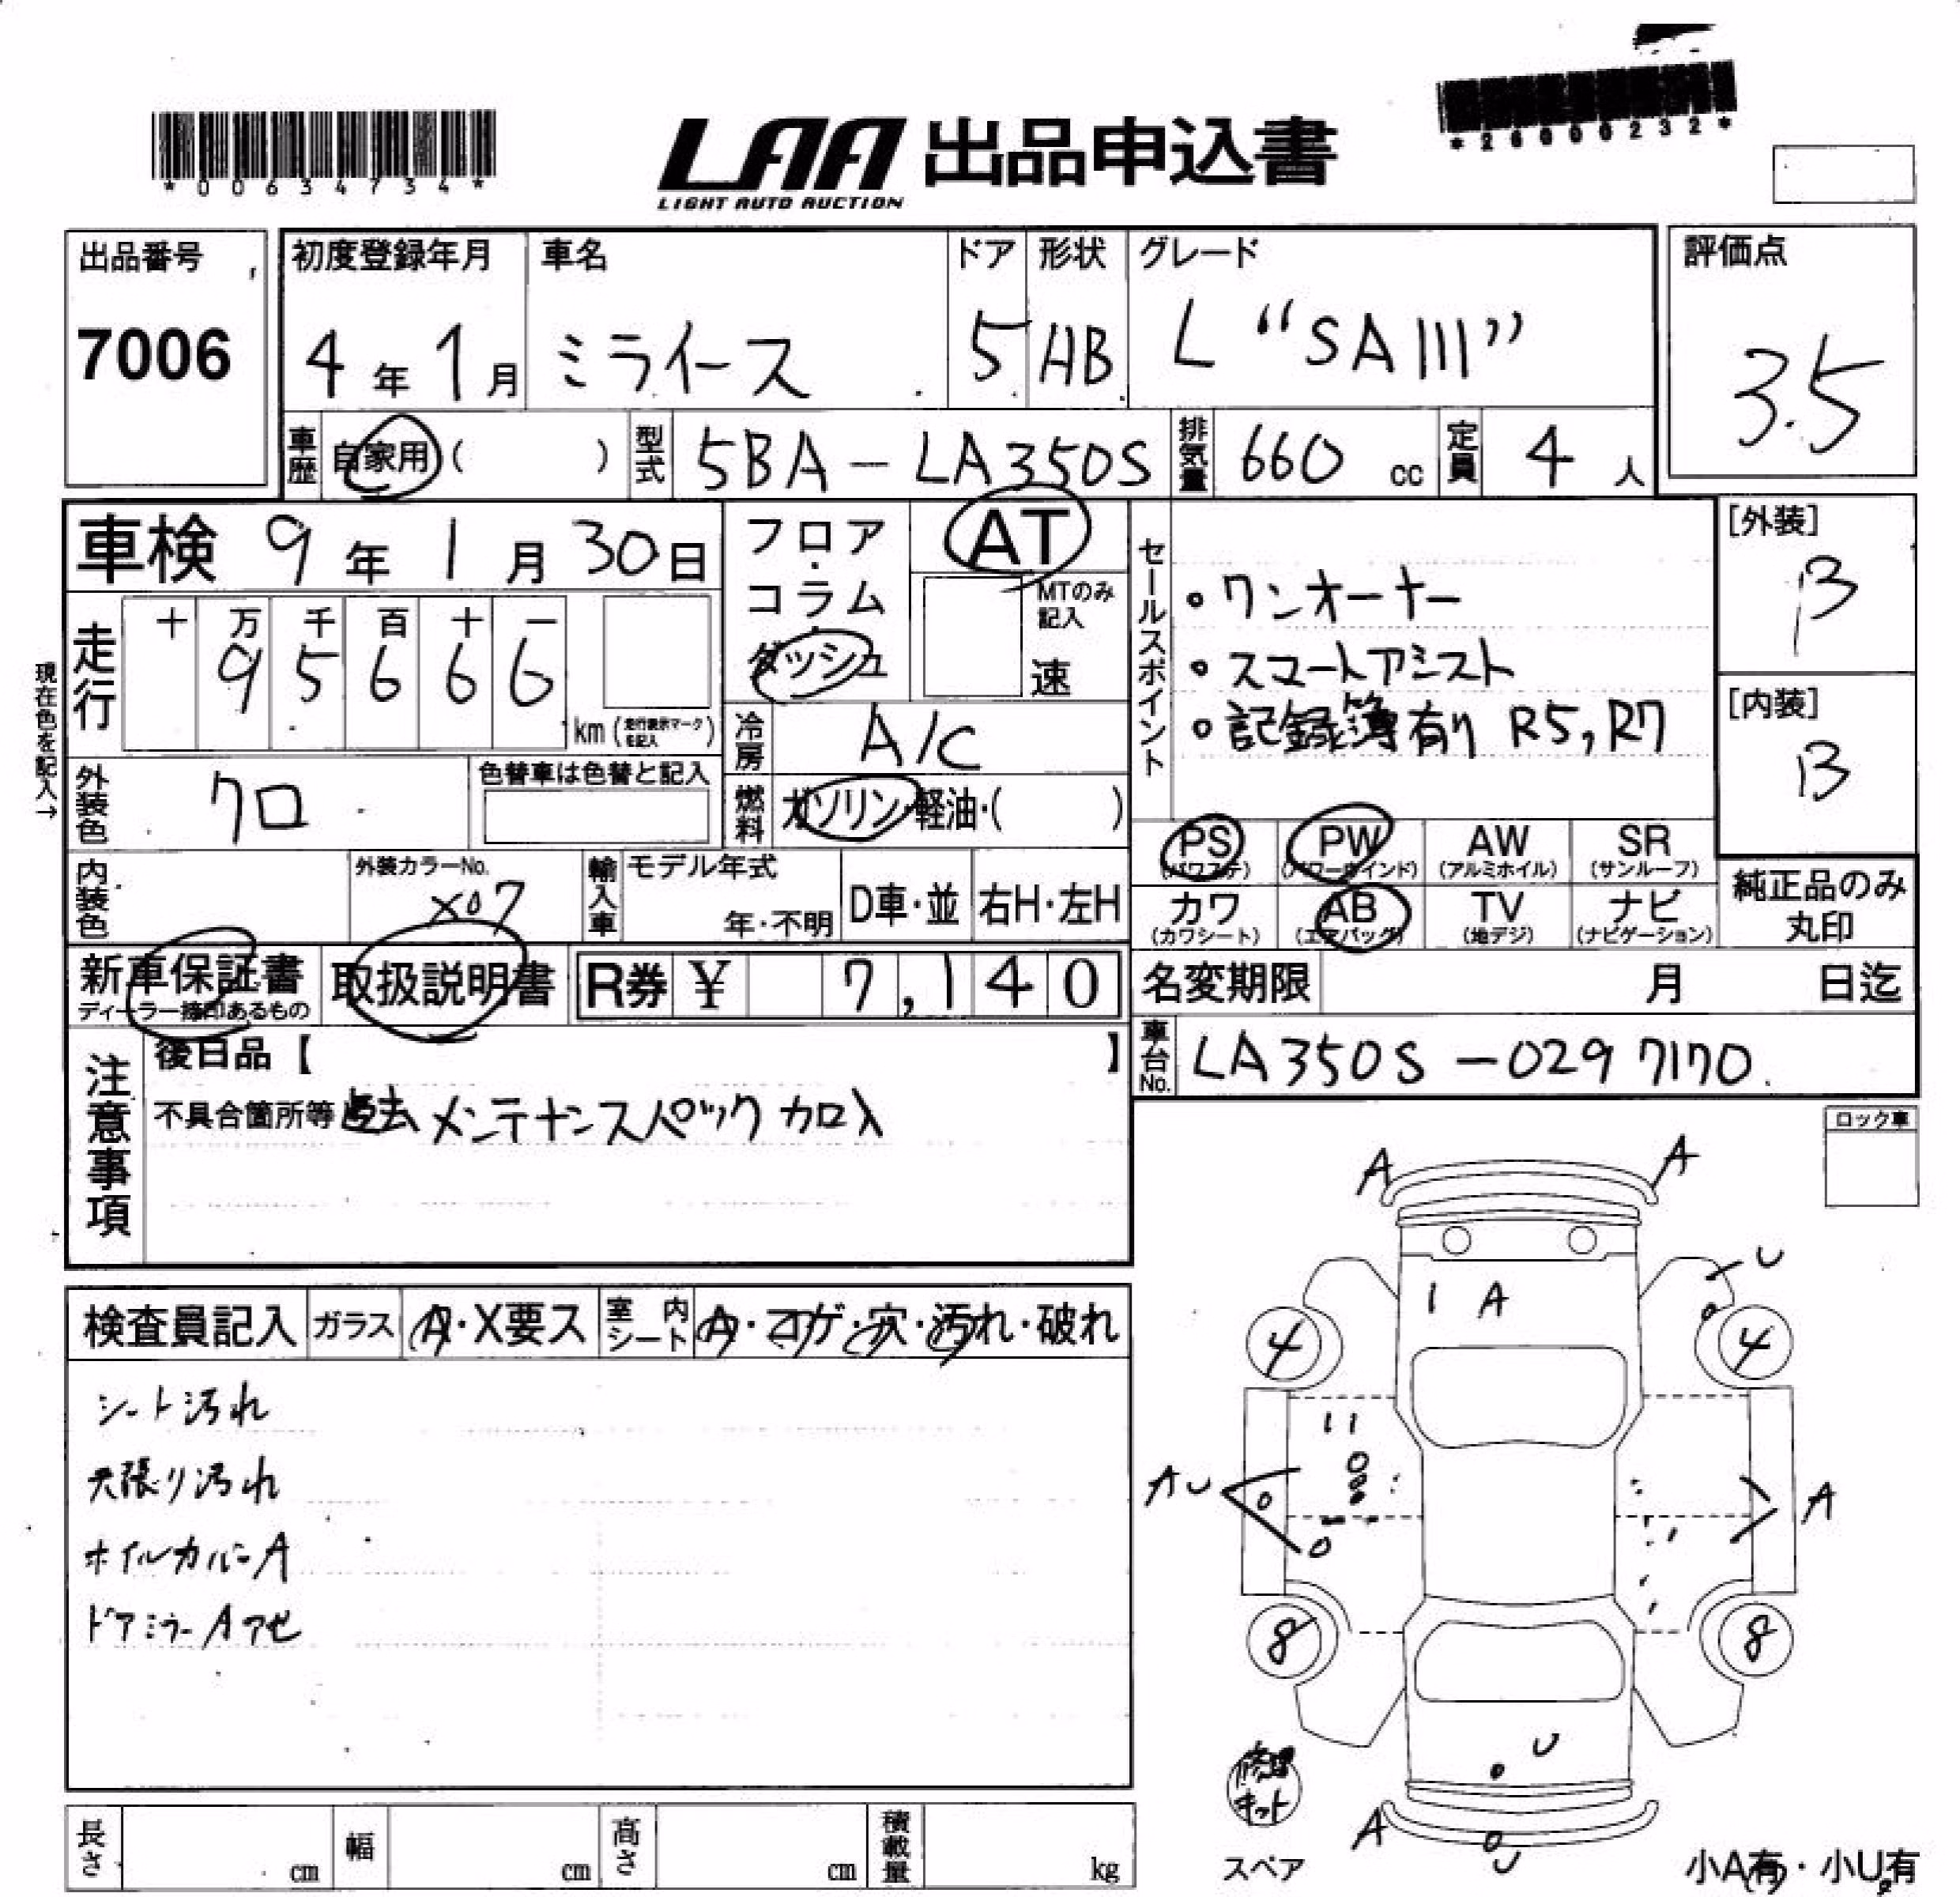 *00634734*
LAA 出品申込書
LIGHT AUTO AUCTION
*26000232*
出品番号
7006
初度登録年月
4年 1月
車名
ミライース
ドア
5
形状
HB
グレード
L “SAIII”
評価点
3.5
車歴
自家用 ( )
型式
5BA-LA350S
排気量
660 cc
定員
4 人
車検 9年 1月 30日
フロア・コラム・ダッシュ
AT
MTのみ記入
速
セールスポイント
・ワンオーナー
・スマートアシスト
・記録簿有り R5,R7
[外装]
B
[内装]
B
現在色を記入→
走行
十 万 千 百 十 一
9 5 6 6 6
km (走行表示マークを記入)
冷房
A/C
外装色
クロ
色替車は色替と記入
燃料
ガソリン・軽油・( )
PS (パワステ)
PW (パワーウインド)
AW (アルミホイル)
SR (サンルーフ)
内装色
外装カラーNo.
X07
輸入車
モデル年式
年・不明
D車・並
右H・左H
カワ (カワシート)
AB (エアバッグ)
TV (地デジ)
ナビ (ナビゲーション)
純正品のみ丸印
新車保証書
ディーラー捺印あるもの
取扱説明書
R券 ¥ 7,140
名変期限 月 日迄
車台No.
LA350S-0297170
注意事項
後日品【 】
不具合箇所等 過去メンテナンスパック加入
ロック車
検査員記入
ガラス
A・X要ス
室内シート
A・コゲ・穴・汚れ・破れ
シート汚れ
天張り汚れ
ホイルカバーA
ドアミラーAアセ
A A
U
1 A
4 4
AU
A
8 8
U
修理キット
A
U
スペア
小A有・小U有
長さ cm
幅 cm
高さ cm
積載量 kg